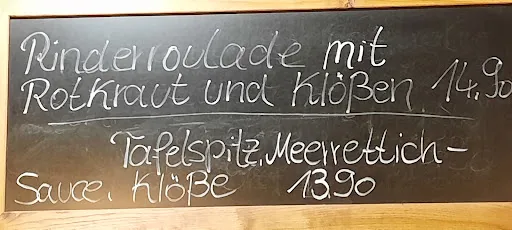 Rinderroulade mit
Rotkraut und Klößen 14,90
Tafelspitz, Meerrettich-
Sauce, Klöße 13,90